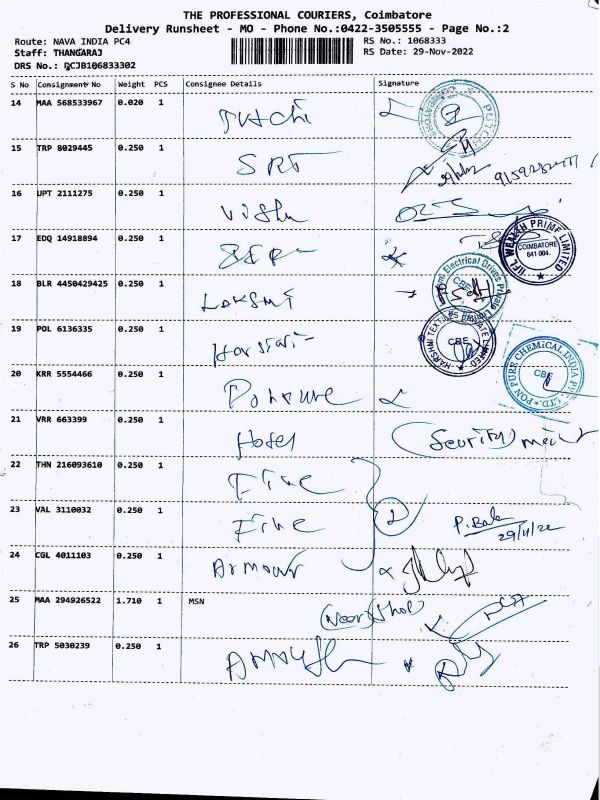 THE PROFESSIONAL COURIERS, Coimbatore
Delivery Runsheet - MO - Phone No.:0422-3505555 - Page No.:2
Route: NAVA INDIA PC4 RS No.: 1068333
Staff: THANGARAJ RS Date: 29-Nov-2022
DRS No.: DCJB106833302
S No Consignment No Weight PCS Consignee Details Signature
14 MAA 568533967 0.020 1
15 TRP 8029445 0.250 1 SRT
16 UPT 2111275 0.250 1 Vishu
17 EDQ 14918894 0.250 1
IIFL WEALTH PRIME LIMITED
COIMBATORE
641 004.
18 BLR 4450429425 0.250 1 Lakshmi
Electrical Drives Private
CBE
19 POL 6136335 0.250 1
HARSHNI TEXTILES PRIVATE LIMITED
CBE
20 KRR 5554466 0.250 1
PON PURE CHEMICAL INDIA PVT. LTD.
CBE
21 VRR 663399 0.250 1 Hotel
22 THN 216093610 0.250 1 Fine
23 VAL 3110032 0.250 1 Fine 2 P. Bala
29/11/22
24 CGL 4011103 0.250 1 Armour
25 MAA 294926522 1.710 1 MSN
(Near) Shop
26 TRP 5030239 0.250 1